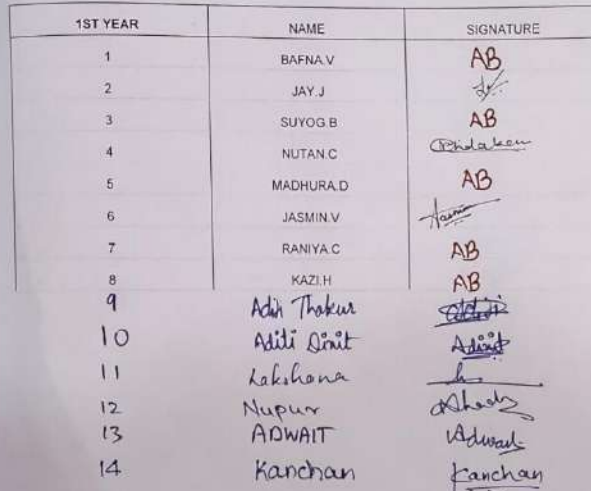 1ST YEAR NAME SIGNATURE
1 BAFNA.V AB
2 JAY.J
3 SUYOG.B AB
4 NUTAN.C
5 MADHURA.D AB
6 JASMIN.V Jasmin
7 RANIYA.C AB
8 KAZI.H AB
9 Thakur
10 Aditi Dixit ADixit
11 Lakshana
12 Nupur
13 ADWAIT Adwait
14 Kanchan Kanchan